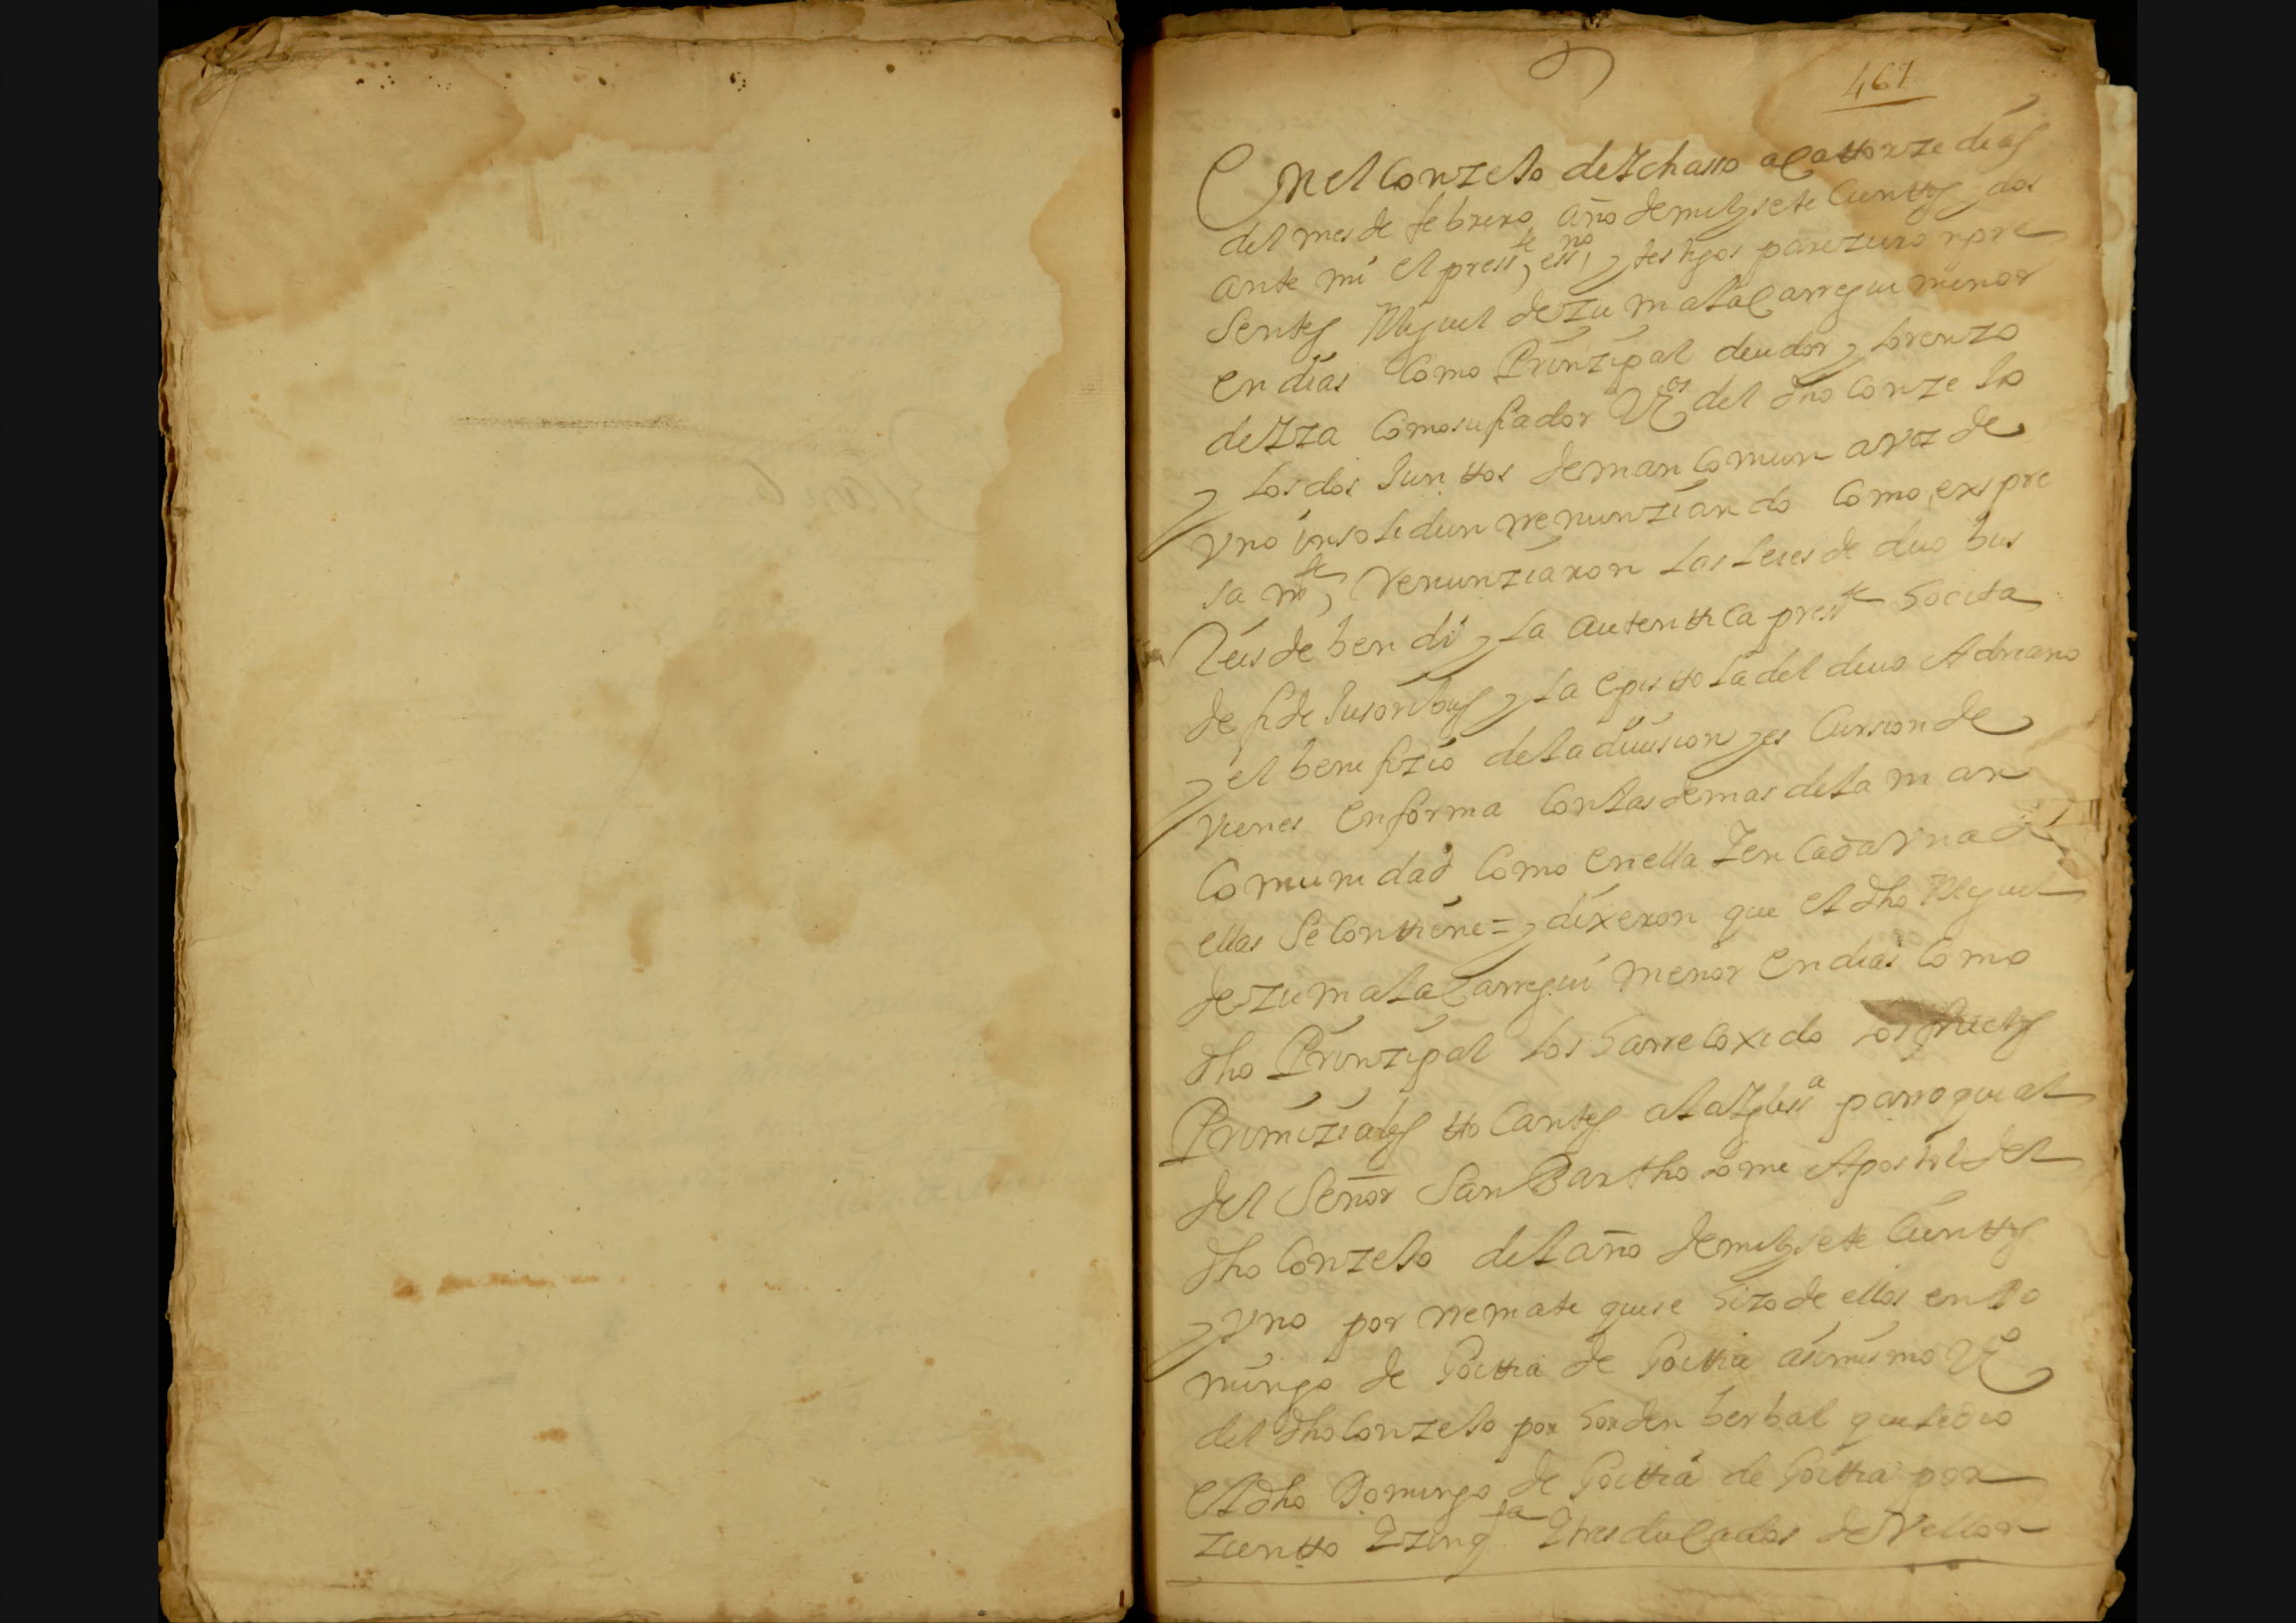 461
En el Conzejo de Ichasso a Cattorze dias
del mes de febrero año de mil y siete Cientos y dos
ante mi el presste, essno, y testigos parezieron pre
Sentes Miguel de Zumalacarregui menor
en dias Como Prinzipal deudor y Lorenzo
de Yza Como su fiador Vezos del dho Conzejo
y los dos Junttos de man Comun a voz de
Vno insolidun rrenunziando Como expre
sa mte, Renunziaron las Leies de duobus
Reis de bendi y la autenttica presste hocita
de fide Jusoribus y la epistola del diuo Adriano
y el benefizio de la diuision y es Cursion de
vienes en forma Con las demas de la man
Comunidad Como en ella Y en Cada Vna de
ellas Se Conttiene = y dixeron que el dho Miguel
de Zumalacarregui menor en dias Como
dho Prinzipal los ha rreCoxido los fructos
Primiziales tto Cantes a la Yglessa parroquial
del Señor San Bartholome Apostol del
dho Conzejo del año de mil y siete Cienttos
y Vno por rremate que se hizo de ellos en Do
mingo de Goittia de Goittia asimismo Vezo
del dho Conzejo por horden berbal que le dio
el dho Domingo de Goittia de Goittia por
zientto Y zinqta Y tres ducados de Vellon